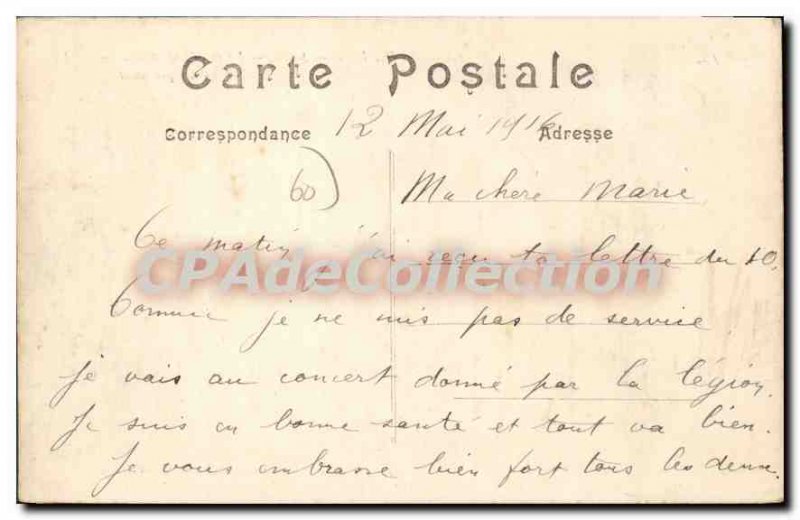 Carte Postale
Correspondance 12 Mai 1916 Adresse
60)
Ma chère Marie
Ce matin j'ai reçu ta lettre du 10.
CPAdeCollection
Comme je ne suis pas de service
je vais au concert donné par la légion.
Je suis en bonne santé et tout va bien.
Je vous embrasse bien fort tous les deux.